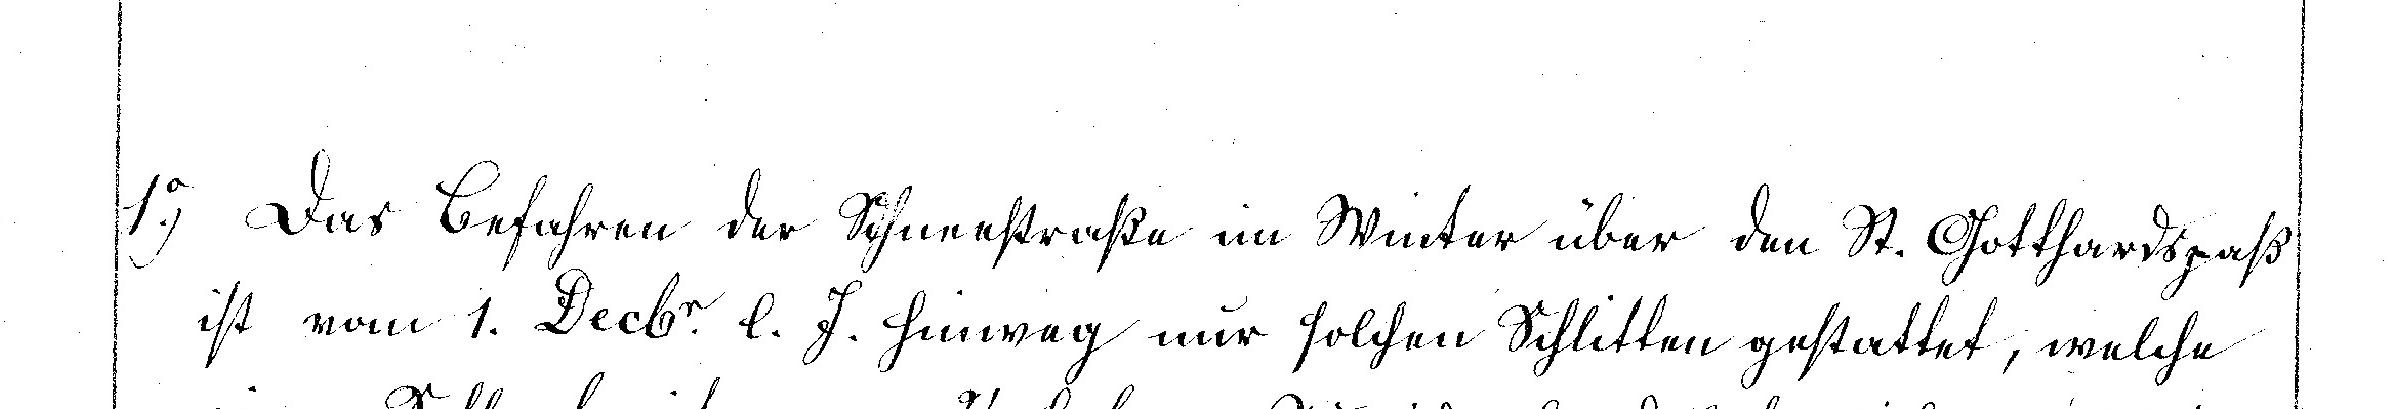 1.º) Das Befahren der Schneestraße im Winter über den St. Gotthardspaß
ist vom 1. Decbr. l. J. hinweg nur solchen Schlitten gestattet, welche